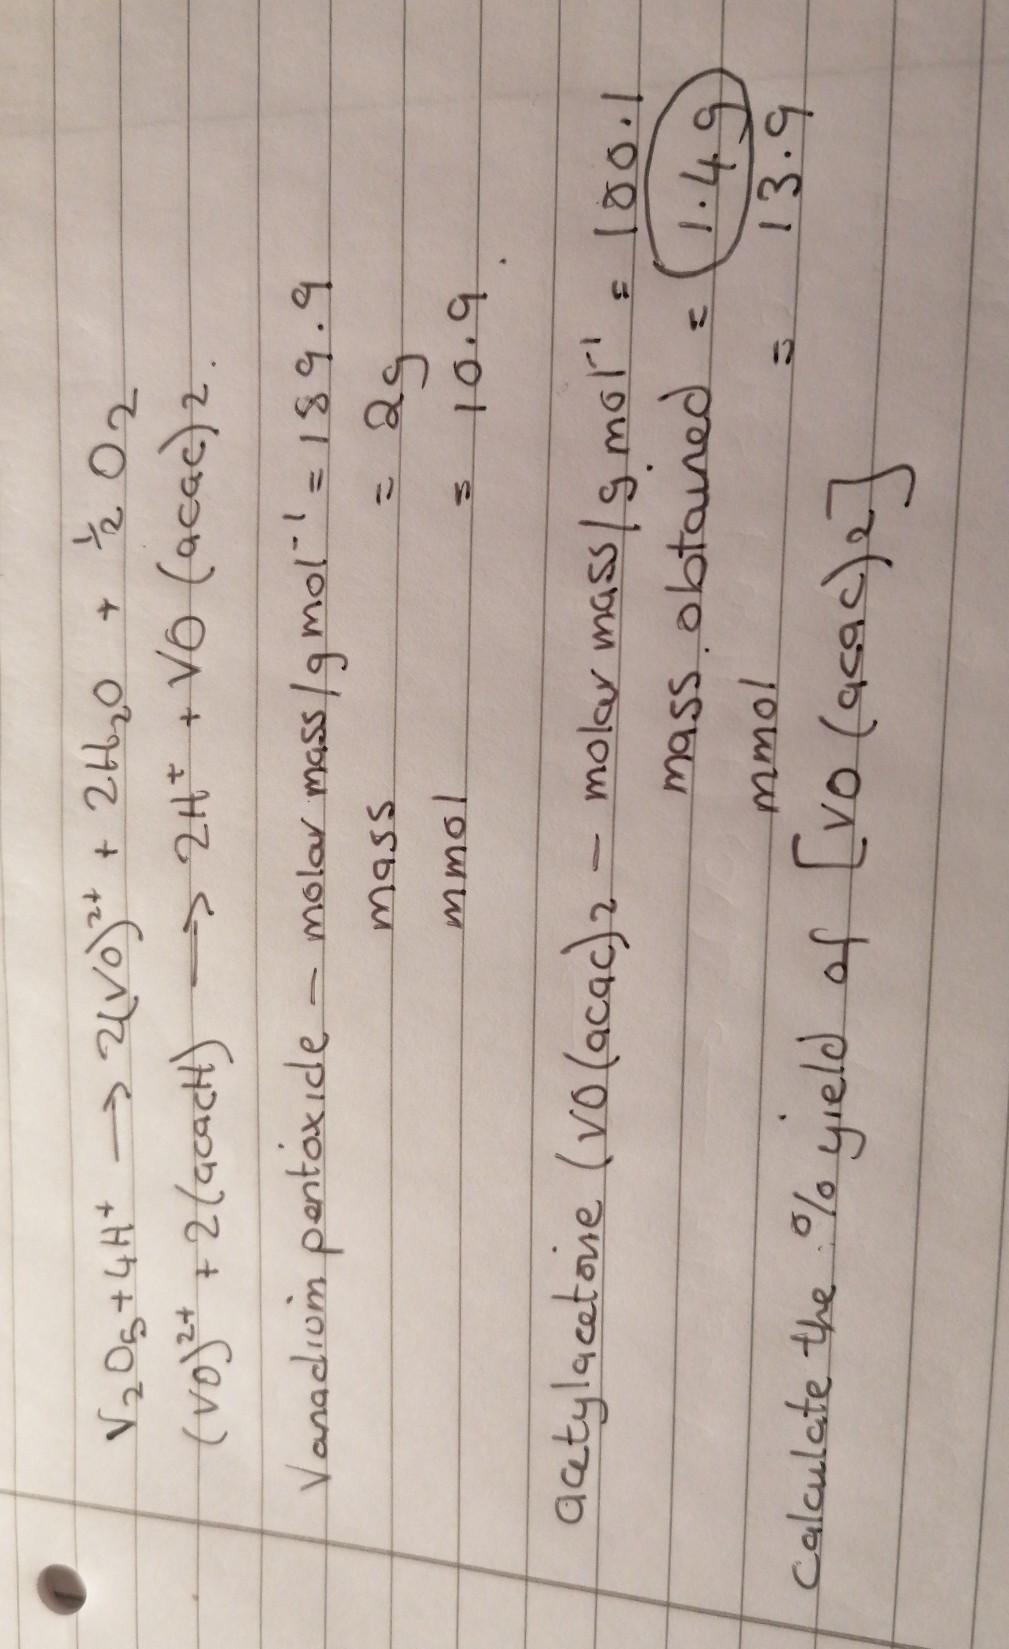 V₂O₅ + 4H⁺ → 2(VO)²⁺ + 2H₂O + ½ O₂
(VO)²⁺ + 2(acacH) → 2H⁺ + VO (acac)2.
Vanadium pentoxide – molar mass/g mol⁻¹ = 189.9
mass = 2g
mmol = 10.9
acetylacetone (VO(acac)2 – molar mass/g mol⁻¹ = 100.1
mass obtained = 1.4g
mmol = 13.9
Calculate the % yield of [VO(acac)2]